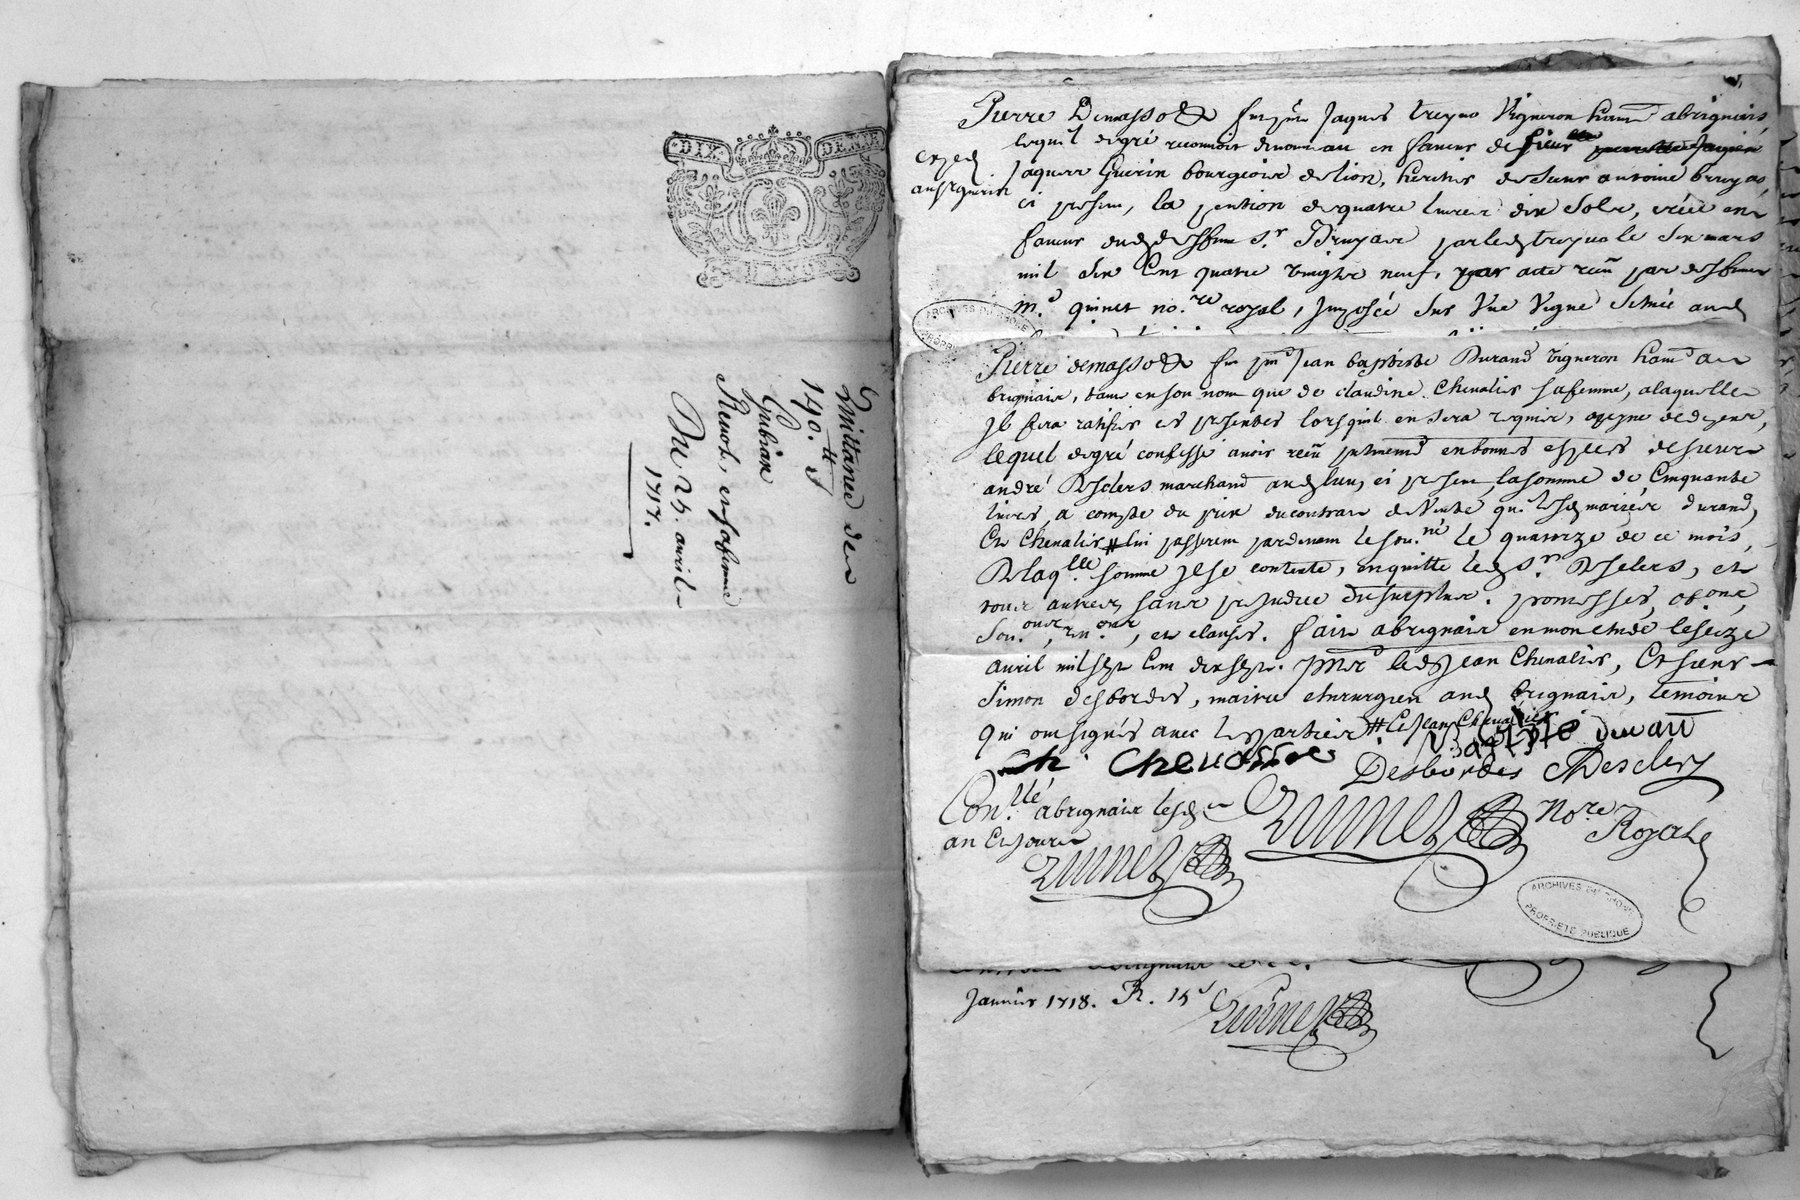 DIX DENIE
Quittance de
190.tt
Gubian
Du 25. avril
1717.
Pierre Demasso &a fut pnt Jaques treyno Vigneron habt abrignais,
lequel degré reconnoit denouveau en faveur de sieur
Jaques Guerin bourgeois delion, heritier de sieur antoine bruyas,
ci present, la pention dequatre livres dix sols, créée en
faveur dud deffunt Sr. Bruyas par led treyno le dix mars
mil six cent quatre vingts neuf, par acte receu par deffunt
me. quinet nore. royal, Imposée sur Une Vigne située aud
exped
au sr guerin
ARCHIVES DU RHONE
PROPRIETE PUBLIQUE
Pierre demasso &a fut pnt Jean baptiste Durand vigneron habt a
brignais, tant enson nom que de claudine Chevalier safemme, alaquelle
Il fera ratifier ces presentes lorsquil en sera requis, apeyne de depens,
lequel degré confesse avoir receu presentement enbonnes especes desieur
andré Desclers marchand aud lieu, ci present, lasomme de Cinquante
livres, a compte du prix ducontrat deVente que lesd mariez durand,
Et Chevalier # lui passerent pardevant le sou.né le quatorze de ce mois,
Delaqlle somme Il se contente, enquitte led Sr. Desclers, et
tous autres, sans prejudice dusurplus. promesses, obons,
Sou.ons, ren.ons, et clauses. fait abrignais enmon etude leseize
avril milsept Cent dixsept. pnts led Jean Chevalier, Et sieur
Simon desbordes, maitre chirurgien aud brignais, temoins
Qui ont signés avec les parties # Et Jean Chevalier
Baptiste durant
Chevallier Desbordes ADesclers
Con.llé abrignais lesd
an Et jour
Quinet
Quinet Nore. Royal
ARCHIVES DU RHONE
PROPRIETE PUBLIQUE
Janvier 1718. R. 15s
Quinet